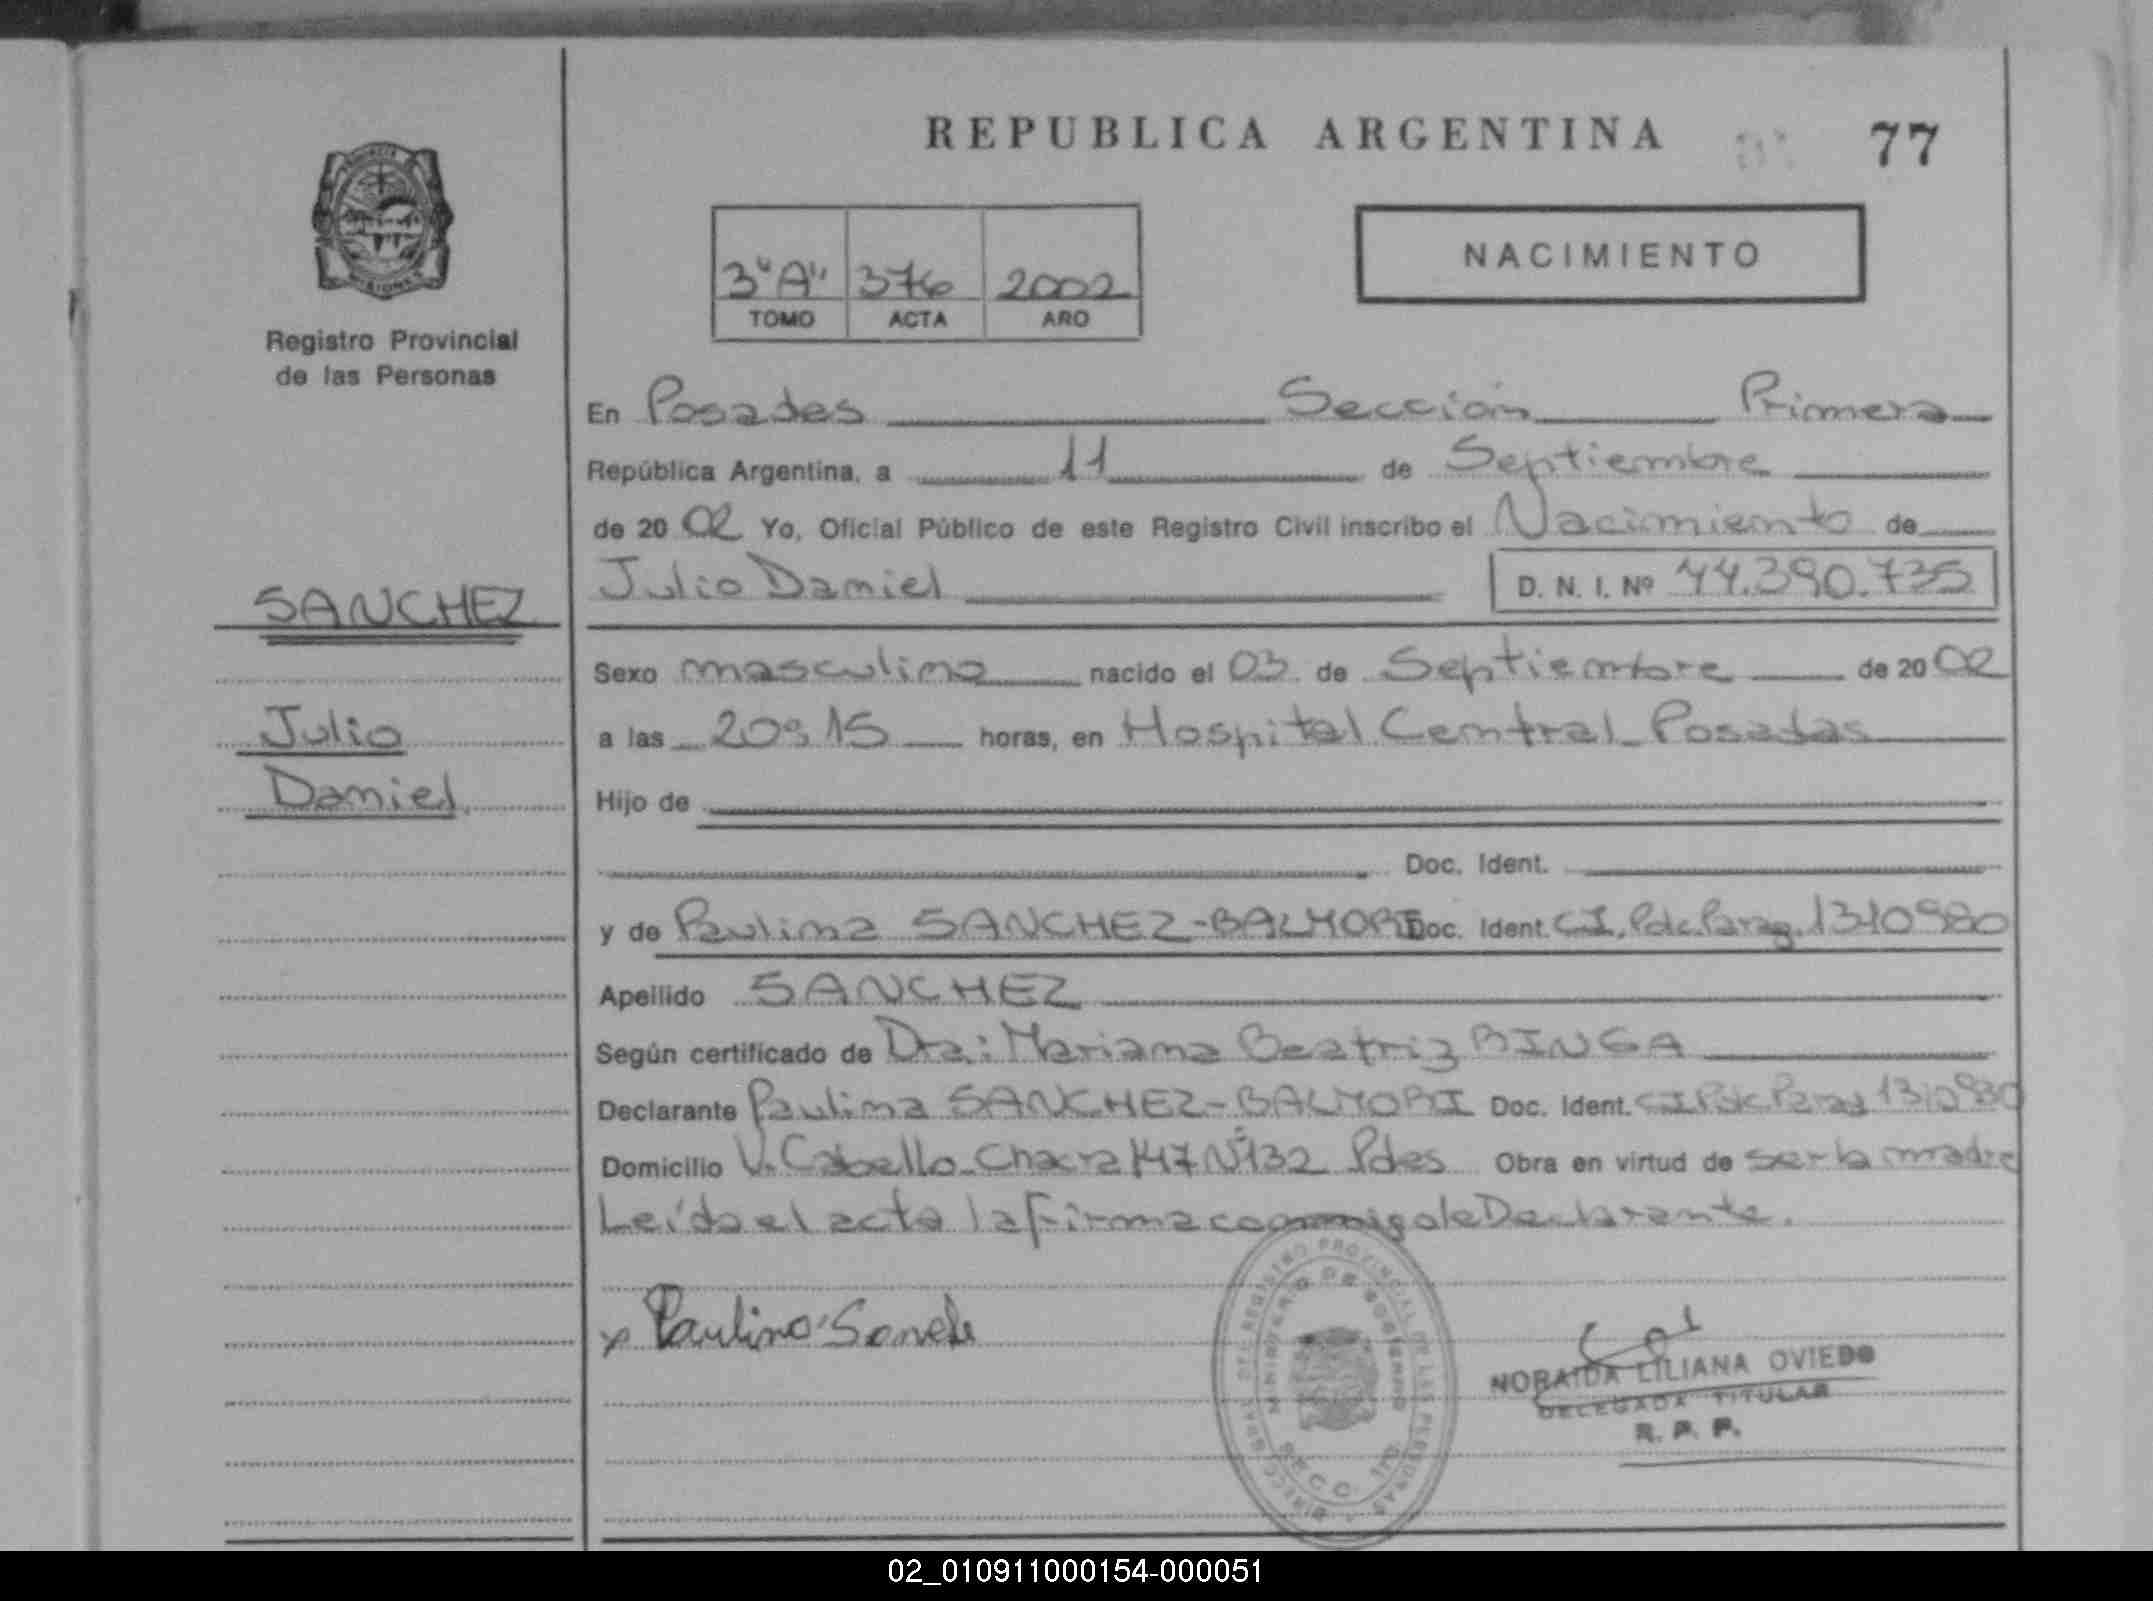 REPUBLICA ARGENTINA
77
3"A" 376 2002
TOMO ACTA AÑO
NACIMIENTO
Registro Provincial
de las Personas
En Posadas Sección Primera
República Argentina, a 11 de Septiembre
de 2002 Yo, Oficial Público de este Registro Civil inscribo el Nacimiento de
Julio Daniel D. N. I. Nº 44.390.735
SANCHEZ
Julio
Daniel
Sexo masculino nacido el 03 de Septiembre de 2002
a las 20,15 horas, en Hospital Central Posadas
Hijo de
Doc. Ident.
y de Paulina SANCHEZ-BALMORI Doc. Ident. CI. Pol. Parag. 1310980
Apellido SANCHEZ
Según certificado de Dra: Mariana Beatriz BINGA
Declarante Paulina SANCHEZ-BALMORI Doc. Ident. CI Pol. Parag 1310980
Domicilio V. Cabello Chacra 147 Nº132 Pdas Obra en virtud de ser la madre
Leída el acta la firma conmigo la Declarante.
x Paulina Sanche
DIRECCION DEL REGISTRO PROVINCIAL DE LAS PERSONAS
MINISTERIO DE GOBIERNO
SECC.
NORAIDA LILIANA OVIEDO
DELEGADA TITULAR
R. P. P.
02_010911000154-000051